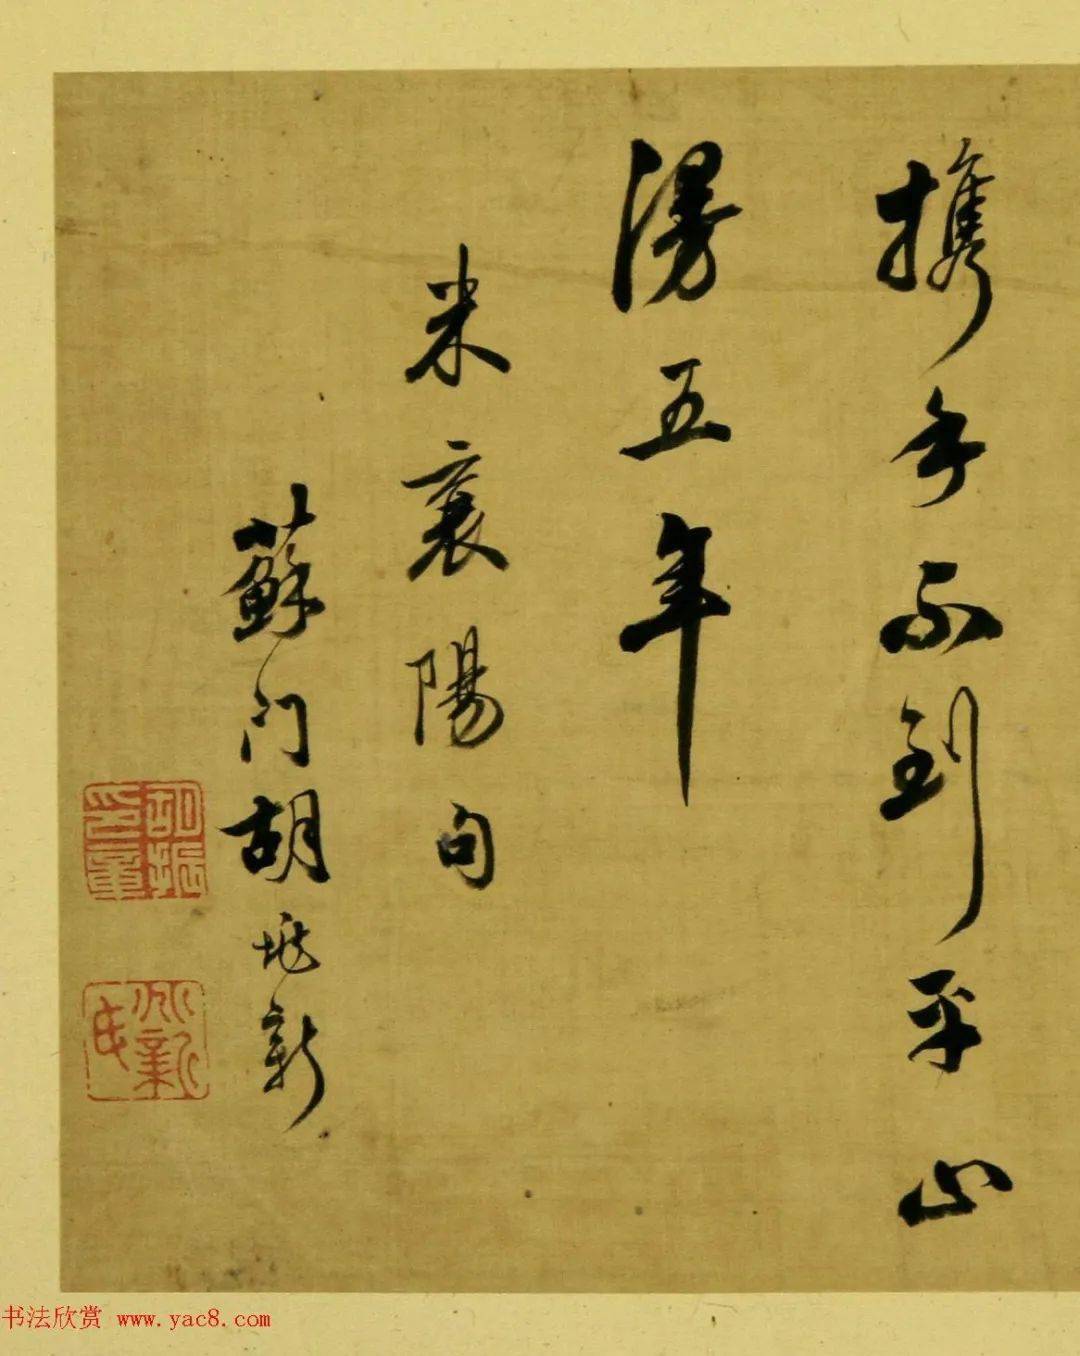 携手不到平山
漫五年
米襄陽句
蘇门胡垗新
兆新氏
书法欣赏 www.yac8.com